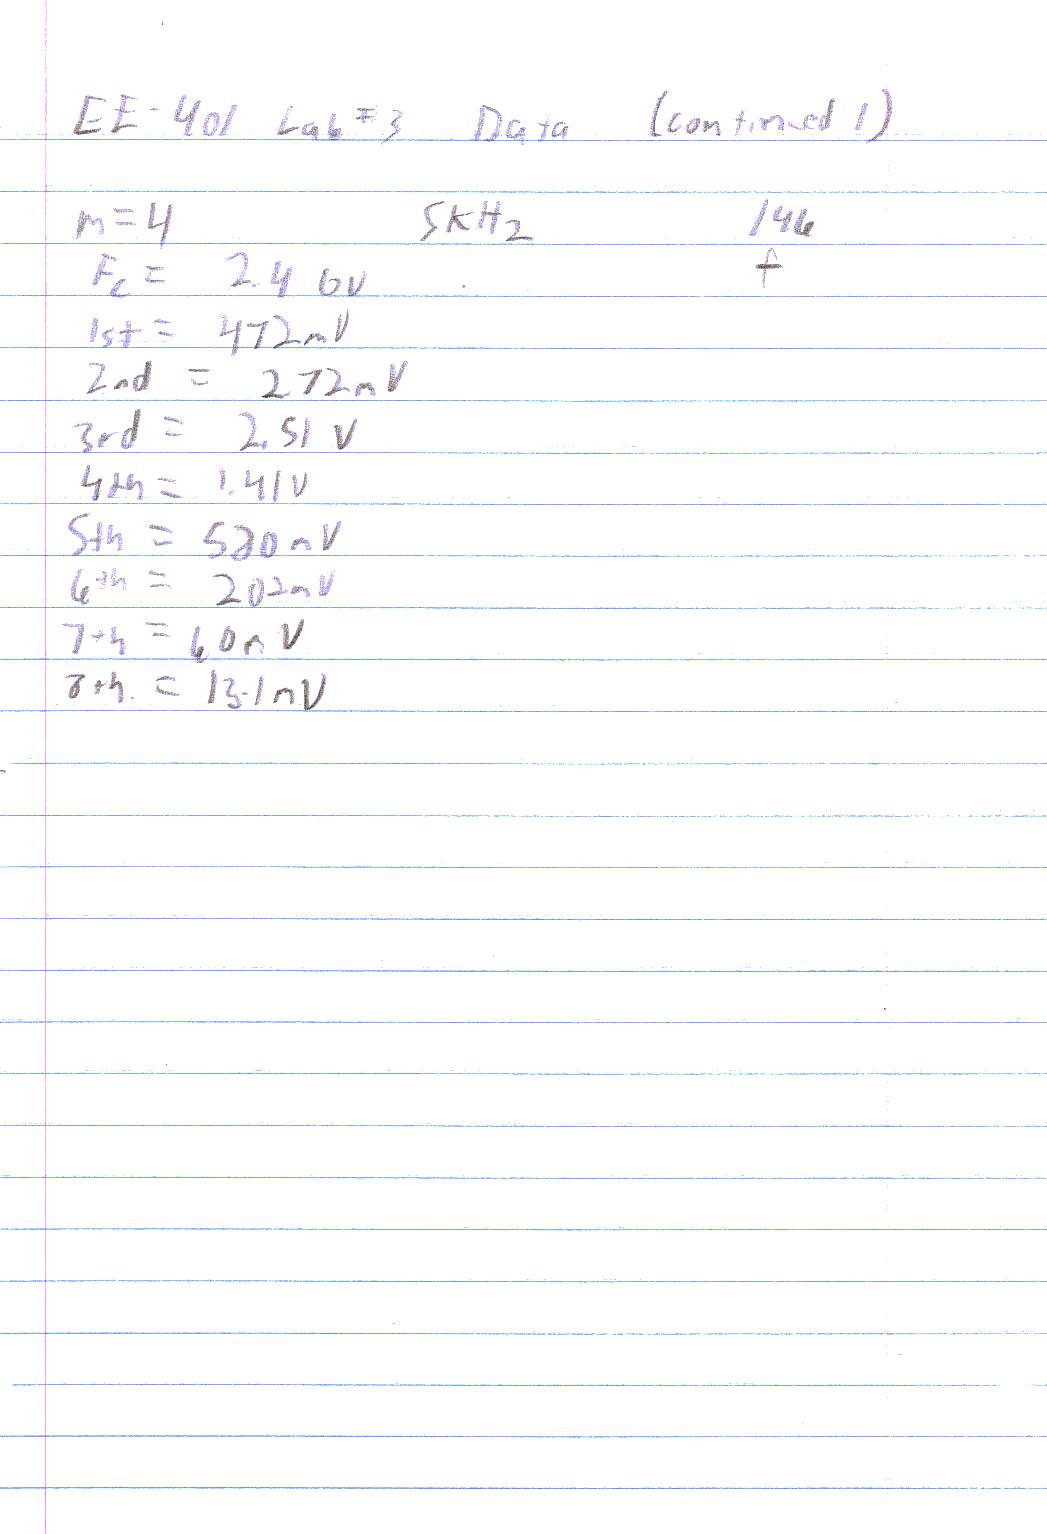 EE-401 Lab #3 Data (continued 1)
m=4 5kHz 146
Fc = 2.46V f
1st = 472mV
2nd = 272mV
3rd = 2.51 V
4th = 1.41V
5th = 520mV
6th = 202mV
7th = 60mV
8th. = 13.1mV